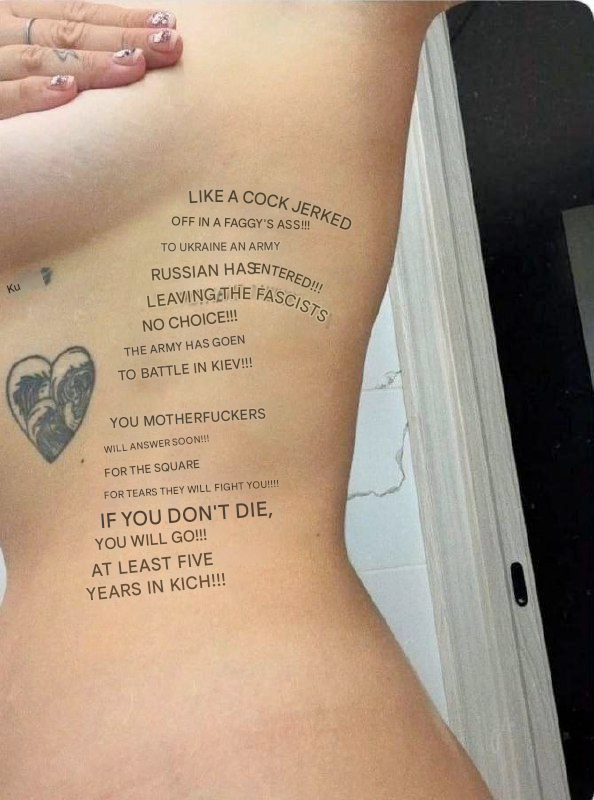 LIKE A COCK JERKED
OFF IN A FAGGY'S ASS!!!
TO UKRAINE AN ARMY
RUSSIAN HAS ENTERED!!!
LEAVING THE FASCISTS
NO CHOICE!!!
THE ARMY HAS GOEN
TO BATTLE IN KIEV!!!
YOU MOTHERFUCKERS
WILL ANSWER SOON!!!
FOR THE SQUARE
FOR TEARS THEY WILL FIGHT YOU!!!!
IF YOU DON'T DIE,
YOU WILL GO!!!
AT LEAST FIVE
YEARS IN KICH!!!
Ku